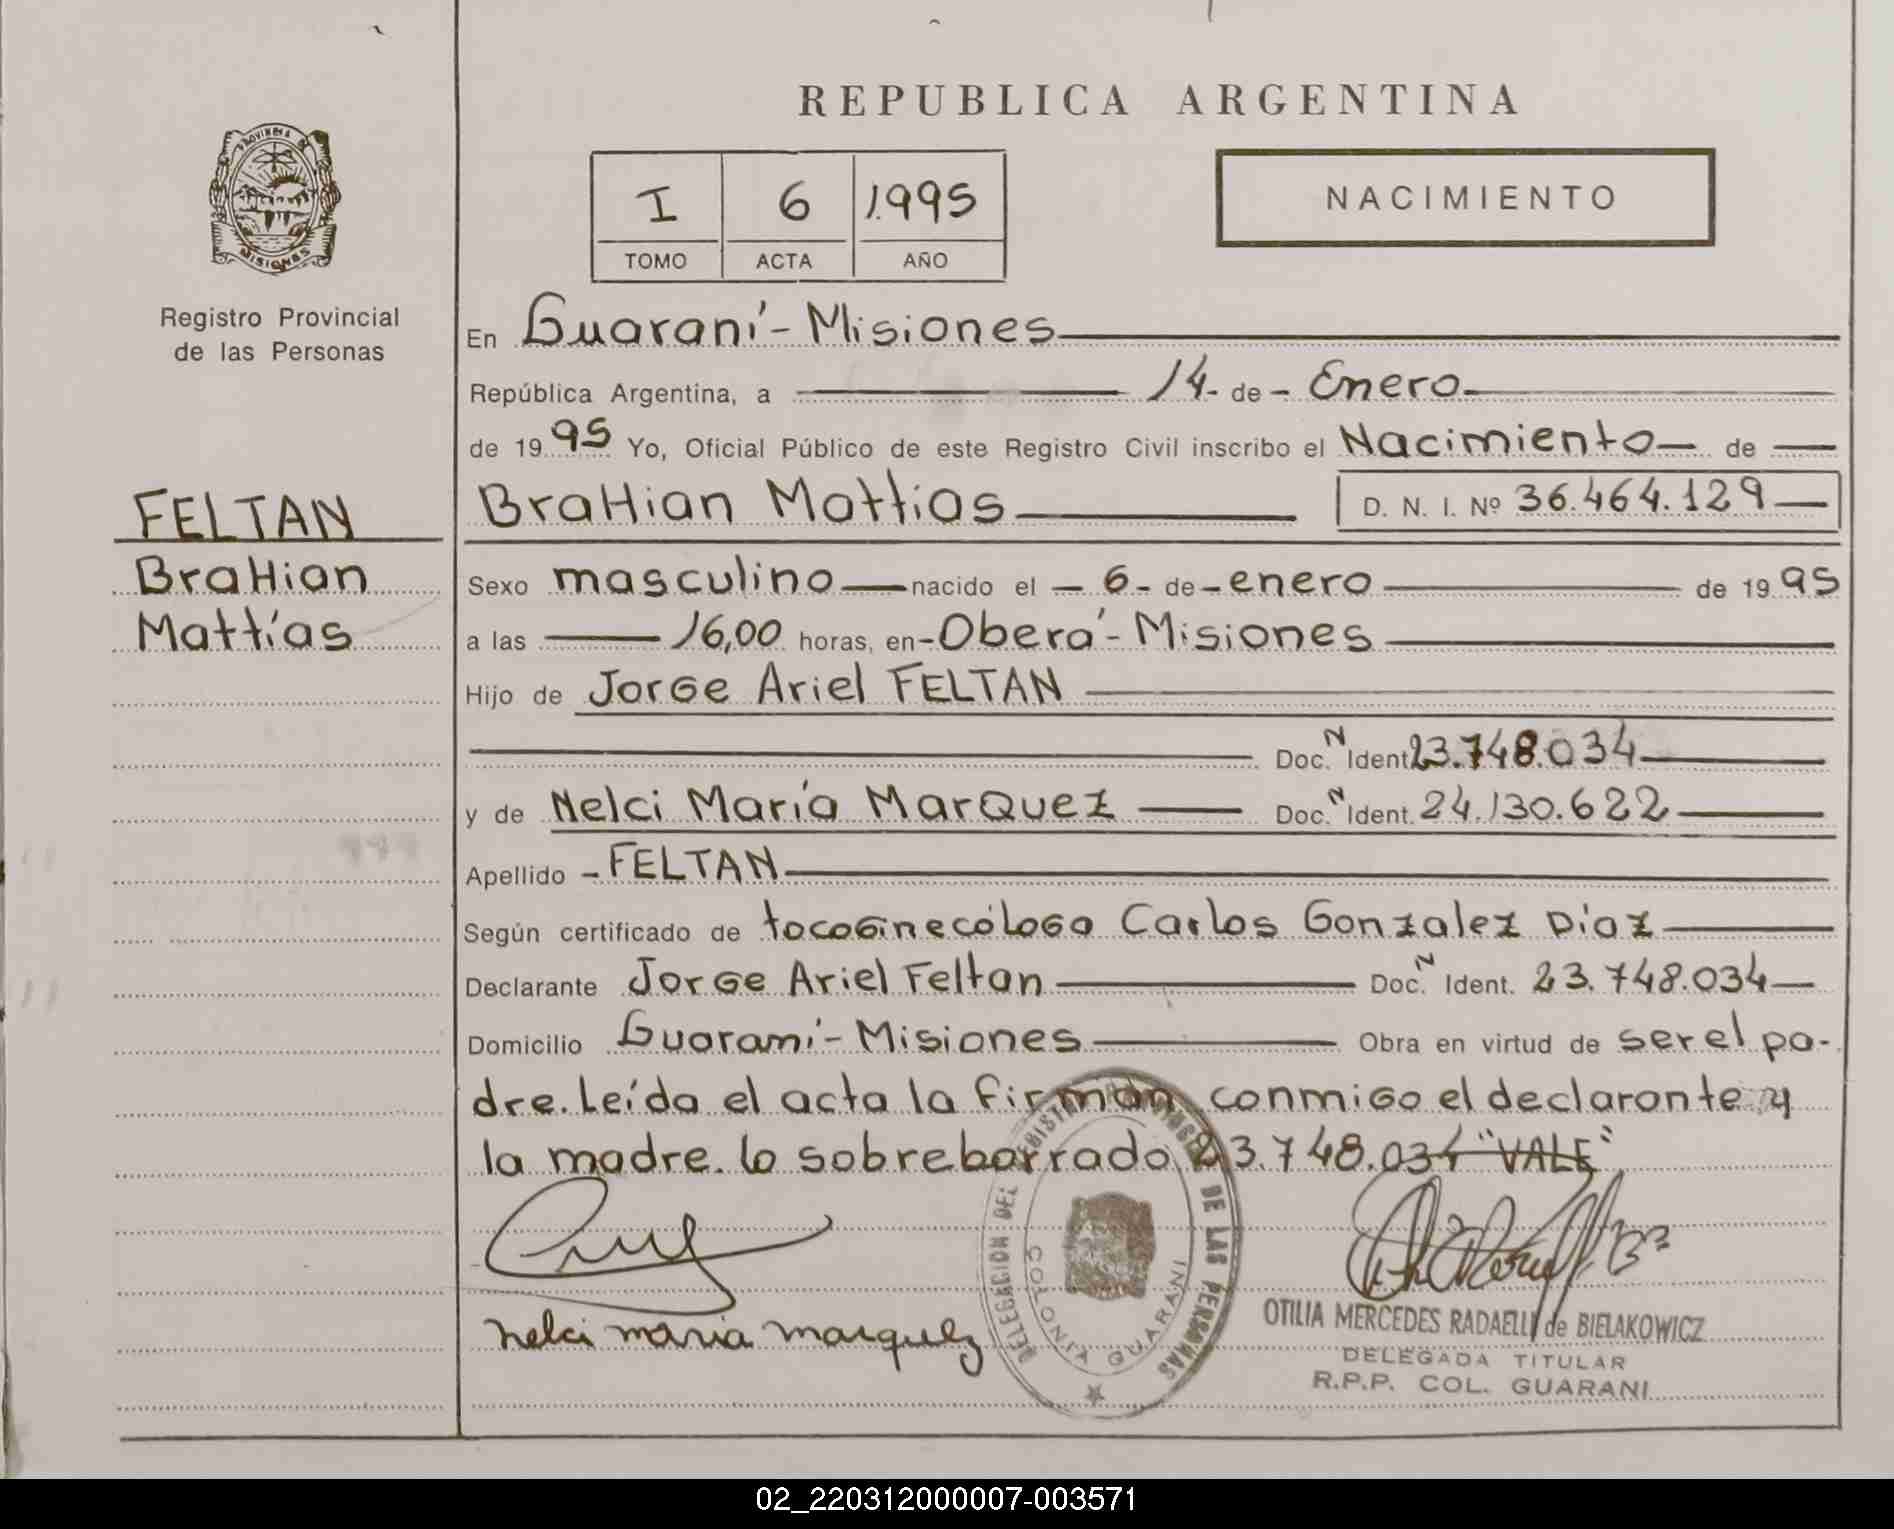 REPUBLICA ARGENTINA
PROVINCIA DE
MISIONES
I 6 1.995
TOMO ACTA AÑO
NACIMIENTO
Registro Provincial
de las Personas
FELTAN
BraHian
Mattías
En Guaraní - Misiones
República Argentina, a 14 - de - Enero
de 1995 Yo, Oficial Público de este Registro Civil inscribo el Nacimiento de
BraHian Mattías D. N. I. Nº 36.464.129
Sexo masculino nacido el - 6 - de - enero de 1995
a las 16,00 horas, en - Oberá - Misiones
Hijo de Jorge Ariel FELTAN
Doc. N Ident. 23.748.034
y de Nelci María MarQuez Doc. N Ident. 24.130.622
Apellido - FELTAN
Según certificado de tocoginecólogo Carlos Gonzalez Díaz
Declarante Jorge Ariel Feltan Doc. N Ident. 23.748.034
Domicilio Guaraní - Misiones Obra en virtud de ser el pa-
dre. Leída el acta la firman conmigo el declarante y
la madre. lo sobreborrado 23.748.034 "VALE"
nelci maria marquez
DELEGACION DEL REGISTRO DE LAS PERSONAS
COLONIA GUARANI
OTILIA MERCEDES RADAELLI de BIELAKOWICZ
DELEGADA TITULAR
R.P.P. COL. GUARANI
02_220312000007-003571